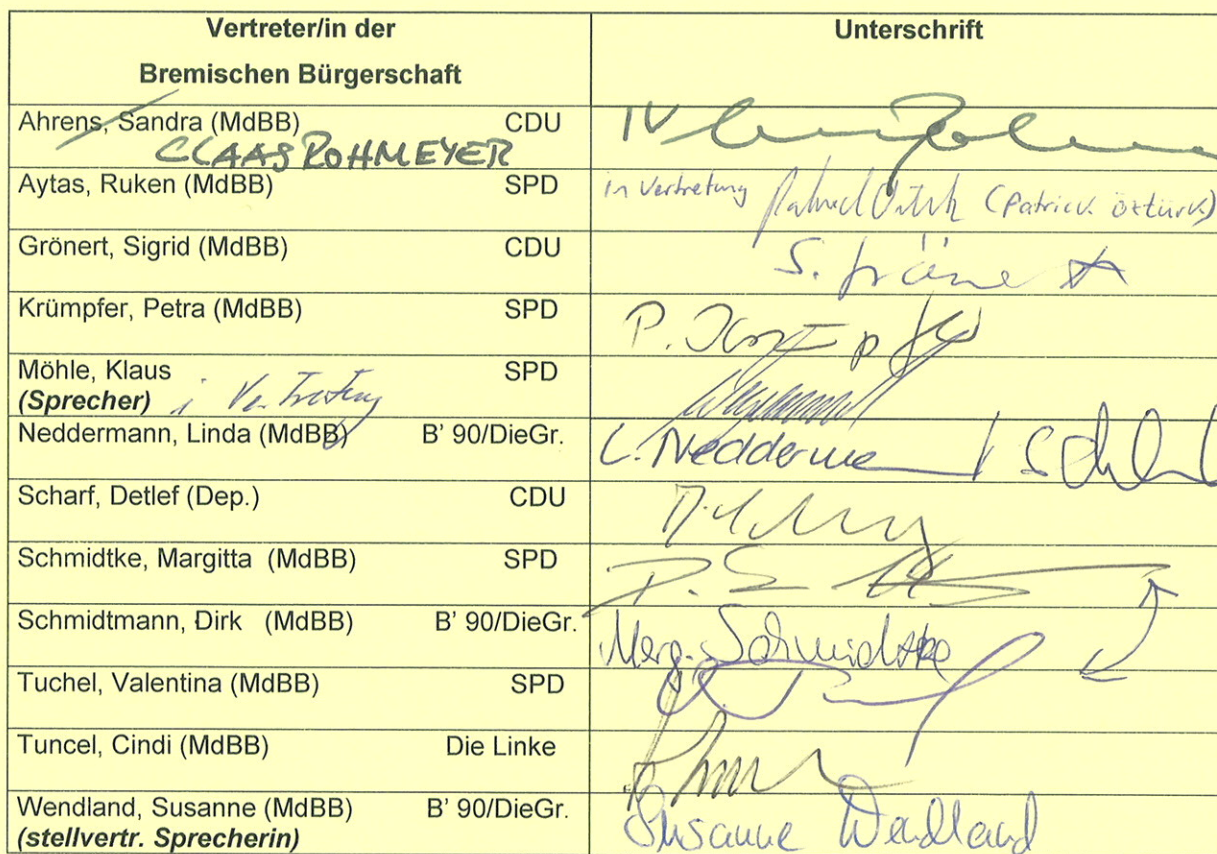 Vertreter/in der Unterschrift
Bremischen Bürgerschaft
Ahrens, Sandra (MdBB) CDU IV
CLAAS ROHMEYER
Aytas, Ruken (MdBB) SPD in Vertretung (Patrick Öztürk)
Grönert, Sigrid (MdBB) CDU S. Grönert
Krümpfer, Petra (MdBB) SPD P. Krümpfer
Möhle, Klaus SPD
(Sprecher) i Vertretung
Neddermann, Linda (MdBB) B' 90/DieGr. L. Neddermann
Scharf, Detlef (Dep.) CDU
Schmidtke, Margitta (MdBB) SPD
Schmidtmann, Dirk (MdBB) B' 90/DieGr. Marg. Schmidtke
Tuchel, Valentina (MdBB) SPD
Tuncel, Cindi (MdBB) Die Linke
Wendland, Susanne (MdBB) B' 90/DieGr. Susanne Wendland
(stellvertr. Sprecherin)